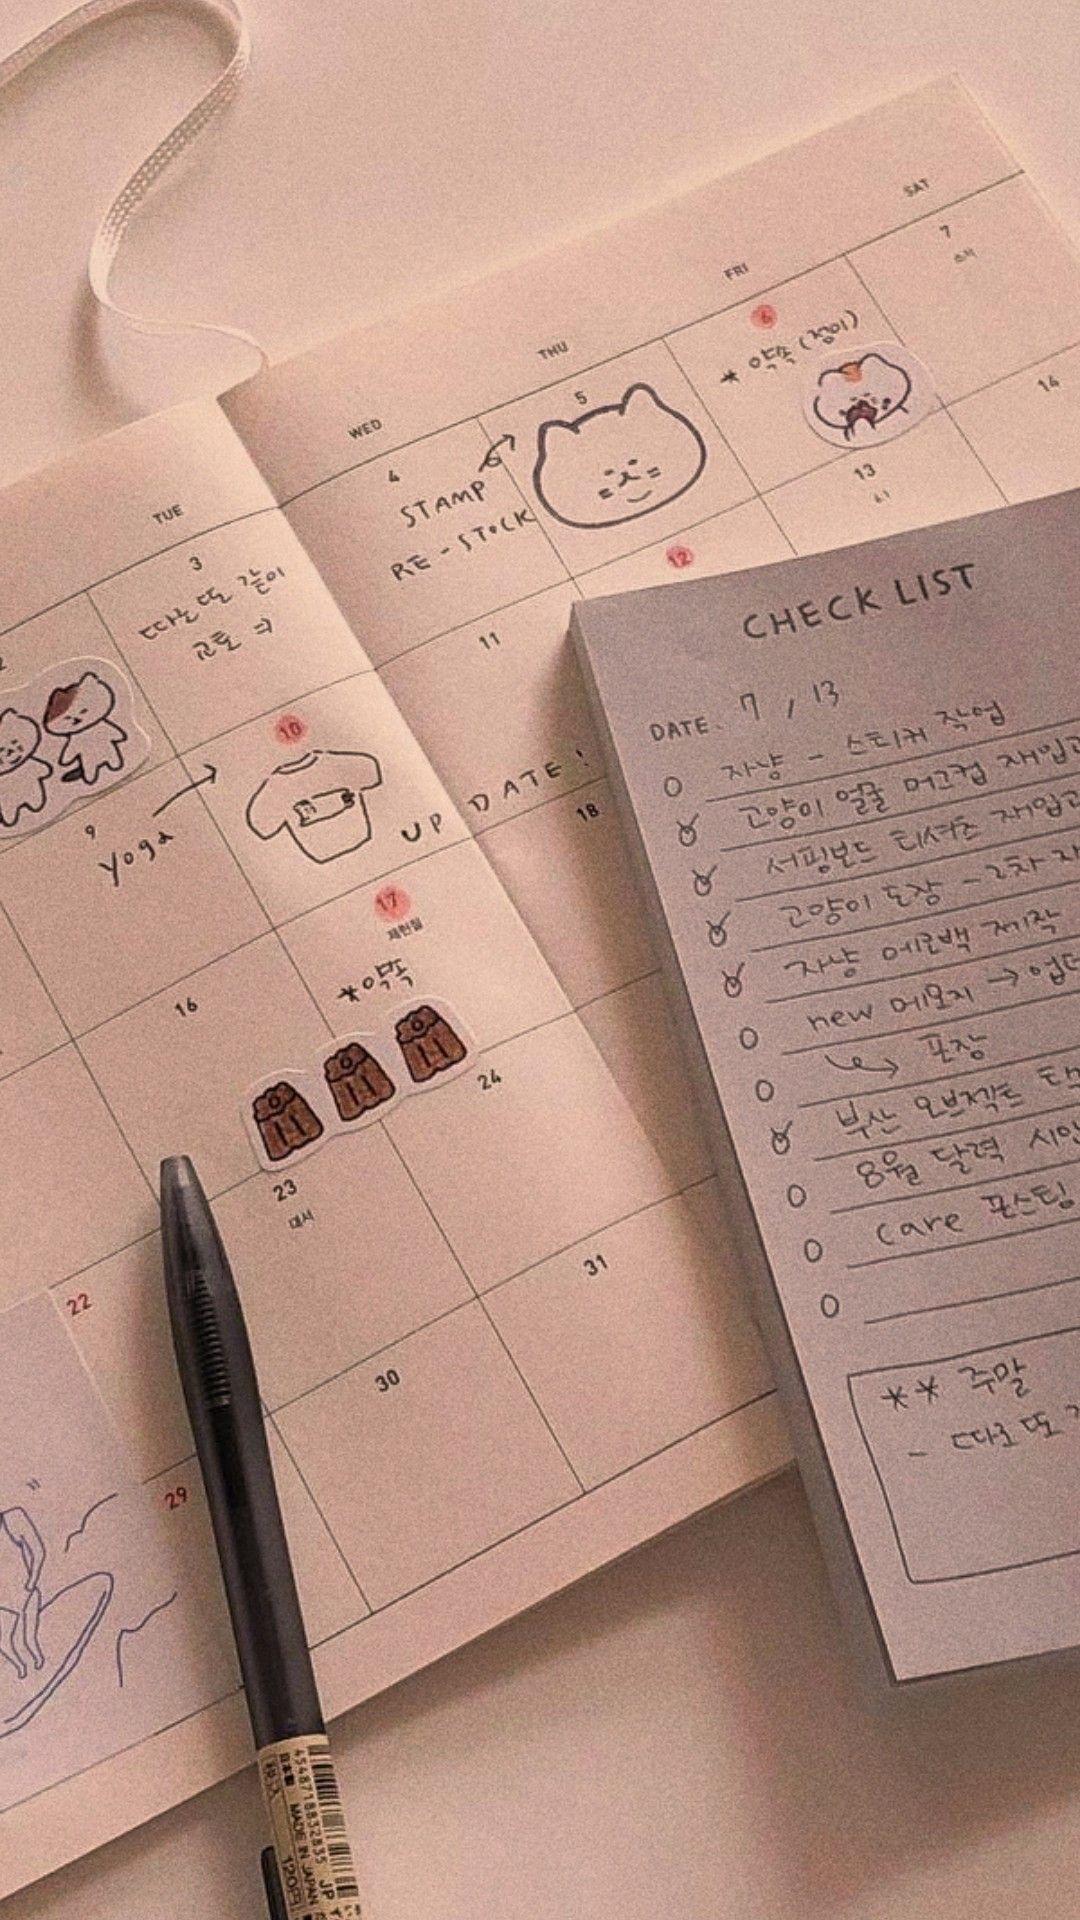 TUE
WED
THU
FRI
SAT
3
따로 또 같이
교토
4
STAMP
RE-STOCK
5
6
* 약속 (정이)
7
소서
9
yoga
10
UP DATE!
11
12
13
초복
14
16
17
제헌절
*약속
18
22
23
대서
24
29
30
31
CHECK LIST
DATE. 7 / 13
자냥 - 스티커 작업
고양이 얼굴 머그컵 재입고
서핑보드 티셔츠 재입고
고양이 도장 - 2차
자냥 에코백 제작
new 메모지 →
포장
부산 오브젝트
8월 달력 시안
care 포스팅
** 주말
- 따로 또
4548718832835
日本製 MADE IN JAPAN
税込 120円
JP